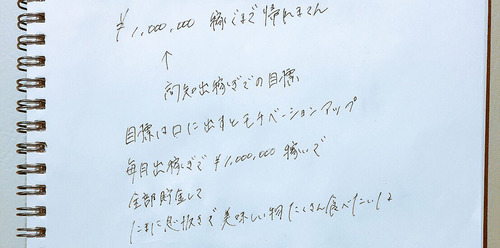 ¥1,000,000 稼ぐまで帰れません
↑
高知出稼ぎでの目標
目標は口に出すとモチベーションアップ
毎月出稼ぎで¥1,000,000稼いで
全部貯金して
たまに息抜きで美味しい物たくさん食べたいよ